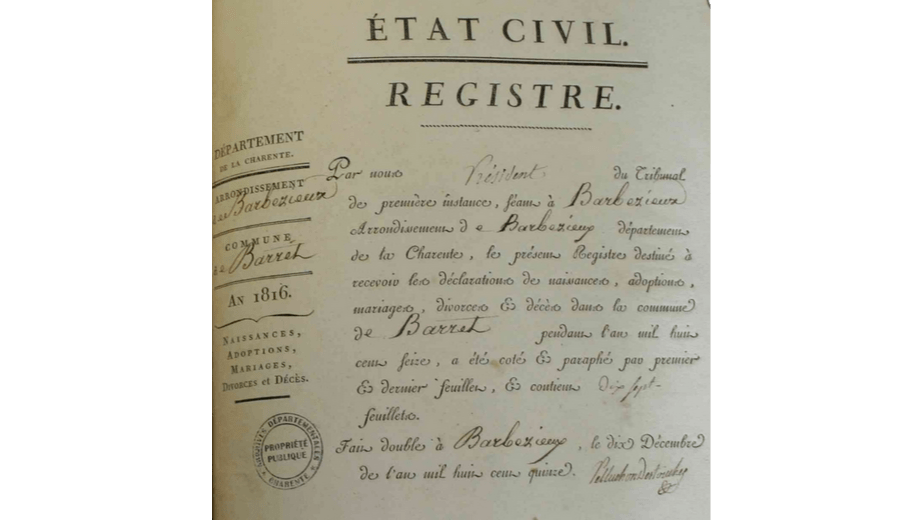 ÉTAT CIVIL.
REGISTRE.
DÉPARTEMENT
DE LA CHARENTE.
ARRONDISSEMENT
de Barbezieux
COMMUNE
de Barret
AN 1816.
NAISSANCES,
ADOPTIONS,
MARIAGES,
DIVORCES ET DÉCÈS.
Par nous Président du Tribunal
de première instance, séant à Barbezieux
Arrondissement de Barbezieux département
de la Charente, le présent Registre destiné à
recevoir les déclarations de naissances, adoptions,
mariages, divorces & décès dans la commune
de Barret pendant l'an mil huit
cent seize, a été coté & paraphé par premier
& dernier feuillet, & contient dix sept
feuillets.
Fait double à Barbezieux, le dix Décembre
de l'an mil huit cent quinze.
ARCHIVES DÉPARTEMENTALES
PROPRIÉTÉ
PUBLIQUE
CHARENTE